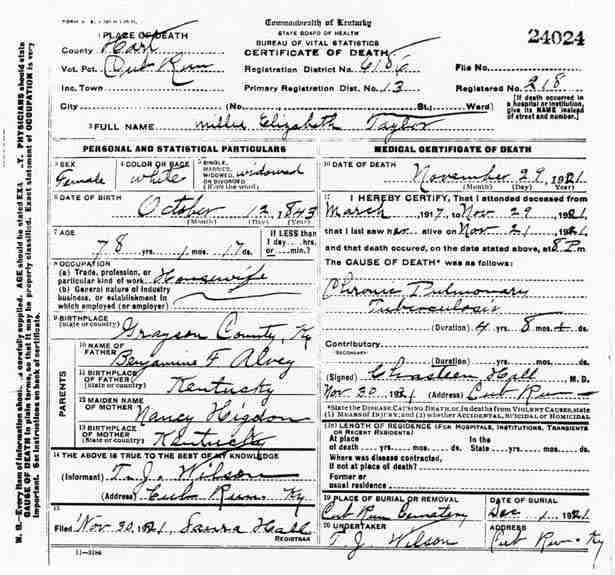 Commonwealth of Kentucky
STATE BOARD OF HEALTH
BUREAU OF VITAL STATISTICS
CERTIFICATE OF DEATH
24024
1 PLACE OF DEATH
County Hart
Vot. Pct. Cub Run
Inc. Town
City (No. St.; Ward)
Registration District No. 6186
File No.
Primary Registration Dist. No. 13
Registered No. 218
(If death occurred in a hospital or institution, give its NAME instead of street and number.)
2 FULL NAME Millie Elizabeth Taylor
PERSONAL AND STATISTICAL PARTICULARS
3 SEX Female
4 COLOR OR RACE white
5 SINGLE, MARRIED, WIDOWED, OR DIVORCED (Write the word) widowed
6 DATE OF BIRTH October 12, 1843
(Month) (Day) (Year)
7 AGE 78 yrs. 1 mos. 17 ds.
If LESS than 1 day....hrs. or....min.?
8 OCCUPATION
(a) Trade, profession, or particular kind of work Housewife
(b) General nature of industry business, or establishment in which employed (or employer)
9 BIRTHPLACE
(State or country) Grayson County, Ky
PARENTS
10 NAME OF FATHER Benjamine F Alvey
11 BIRTHPLACE OF FATHER (State or country) Kentucky
12 MAIDEN NAME OF MOTHER Nancy Higdon
13 BIRTHPLACE OF MOTHER (State or country) Kentucky
14 THE ABOVE IS TRUE TO THE BEST OF MY KNOWLEDGE
(Informant) T. J. Wilson
(Address) Cub Run, Ky
15
Filed Nov. 30, 1921 Saura Hall
REGISTRAR
11-3184
MEDICAL CERTIFICATE OF DEATH
16 DATE OF DEATH November 29, 1921
(Month) (Day) (Year)
17 I HEREBY CERTIFY, That I attended deceased from
March 1917, to Nov 29 1921
that I last saw her alive on Nov 21, 1921
and that death occured, on the date stated above, at 8 P.m
The CAUSE OF DEATH* was as follows:
Chronic Pulmonary
Tuberculosis
(Duration) 4 yrs. 8 mos. ds.
Contributory
(SECONDARY)
(Duration) yrs. mos. ds.
(Signed) Hall M. D.
Nov. 30 1921 (Address) Cub Run
*State the DISEASE CAUSING DEATH, or, in deaths from VIOLENT CAUSES, state (1) MEANS OF INJURY; and (2) whether ACCIDENTAL, SUICIDAL or HOMICIDAL
18 LENGTH OF RESIDENCE (FOR HOSPITALS, INSTITUTIONS, TRANSIENTS OR RECENT RESIDENTS)
At place of death yrs. mos. ds. In the State yrs. mos. ds.
Where was disease contracted, if not at place of death?
Former or usual residence
19 PLACE OF BURIAL OR REMOVAL Cub Run Cemetery
DATE OF BURIAL Dec 1, 1921
20 UNDERTAKER T. J. Wilson
ADDRESS Cub Run Ky